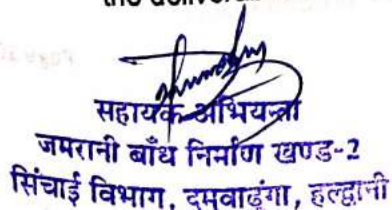 the
सहायक अभियन्ता
जमरानी बाँध निर्माण खण्ड-2
सिंचाई विभाग, दमवाढुंगा, हल्द्वानी